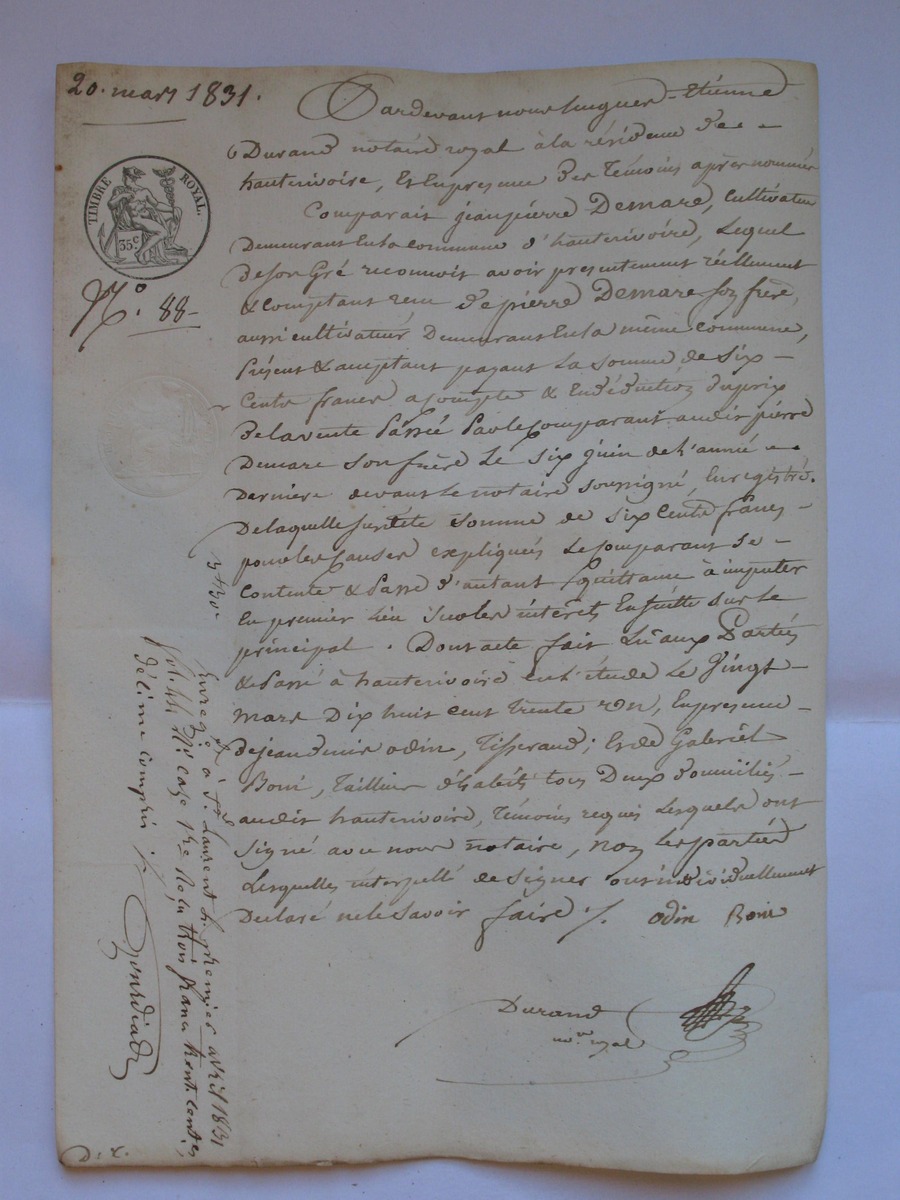 20. mars 1831.
TIMBRE ROYAL.
35 c
N.o 88-
Pardevant nous hugues - Etienne
Durand notaire royal à la résidence de
hauterivoire, Et En presence des Témoins après nommés
Comparait jeanpierre Demare, Cultivateur
Demeurant En la commune d'hauterivoire, Lequel
De son Gré reconnoit avoir presentement réellement
& comptant reçu de pierre Demare son frère,
aussi cultivateur Demeurant En la même Commune,
Présent & acceptant payant La somme de six -
Cents francs acompte & En déduction du prix
De la vente Passée Par le Comparant audit pierre
Demare son frère Le six juin de l'année
Dernière devant Le notaire soussigné, Enregistré.
De laquelle susdite somme de six Cents francs -
pour les Causes expliquées Le Comparant se -
Contente & Passe d'autant quittance à imputer
En premier lieu sur les intérêts Ensuite sur Le
principal. Dont acte fait Lu aux Parties
& Passé à hauterivoire en l'étude Le Vingt -
mars Dix huit cent trente un, En presence -
de jean denis odin, Tisserand; Et de Gabriel
Boni, Tailleur d'habits tous Deux domiciliés -
audit hauterivoire, Témoins requis Lesquels ont
signé avec nous notaire, non Les parties
Lesquelles interpellé de signer ont individuellement
Declaré ne le Savoir faire ./. odin Boni
Durand
no.re royal
3 f 30c
Enreg.é à St. Laurent le premier avril 1831
fol. case Reçu trois francs trente centes,
décime compris ./. Gourdiad
D. r.